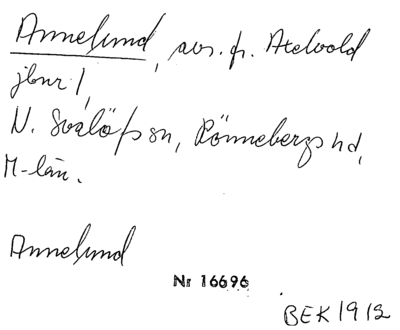 Annelund, avs. fr. Axelvold
jbnr 1,
N. Svalöfs sn, Rönnebergs hd,
M-län.
Annelund
Nr 16696
BEK 1912